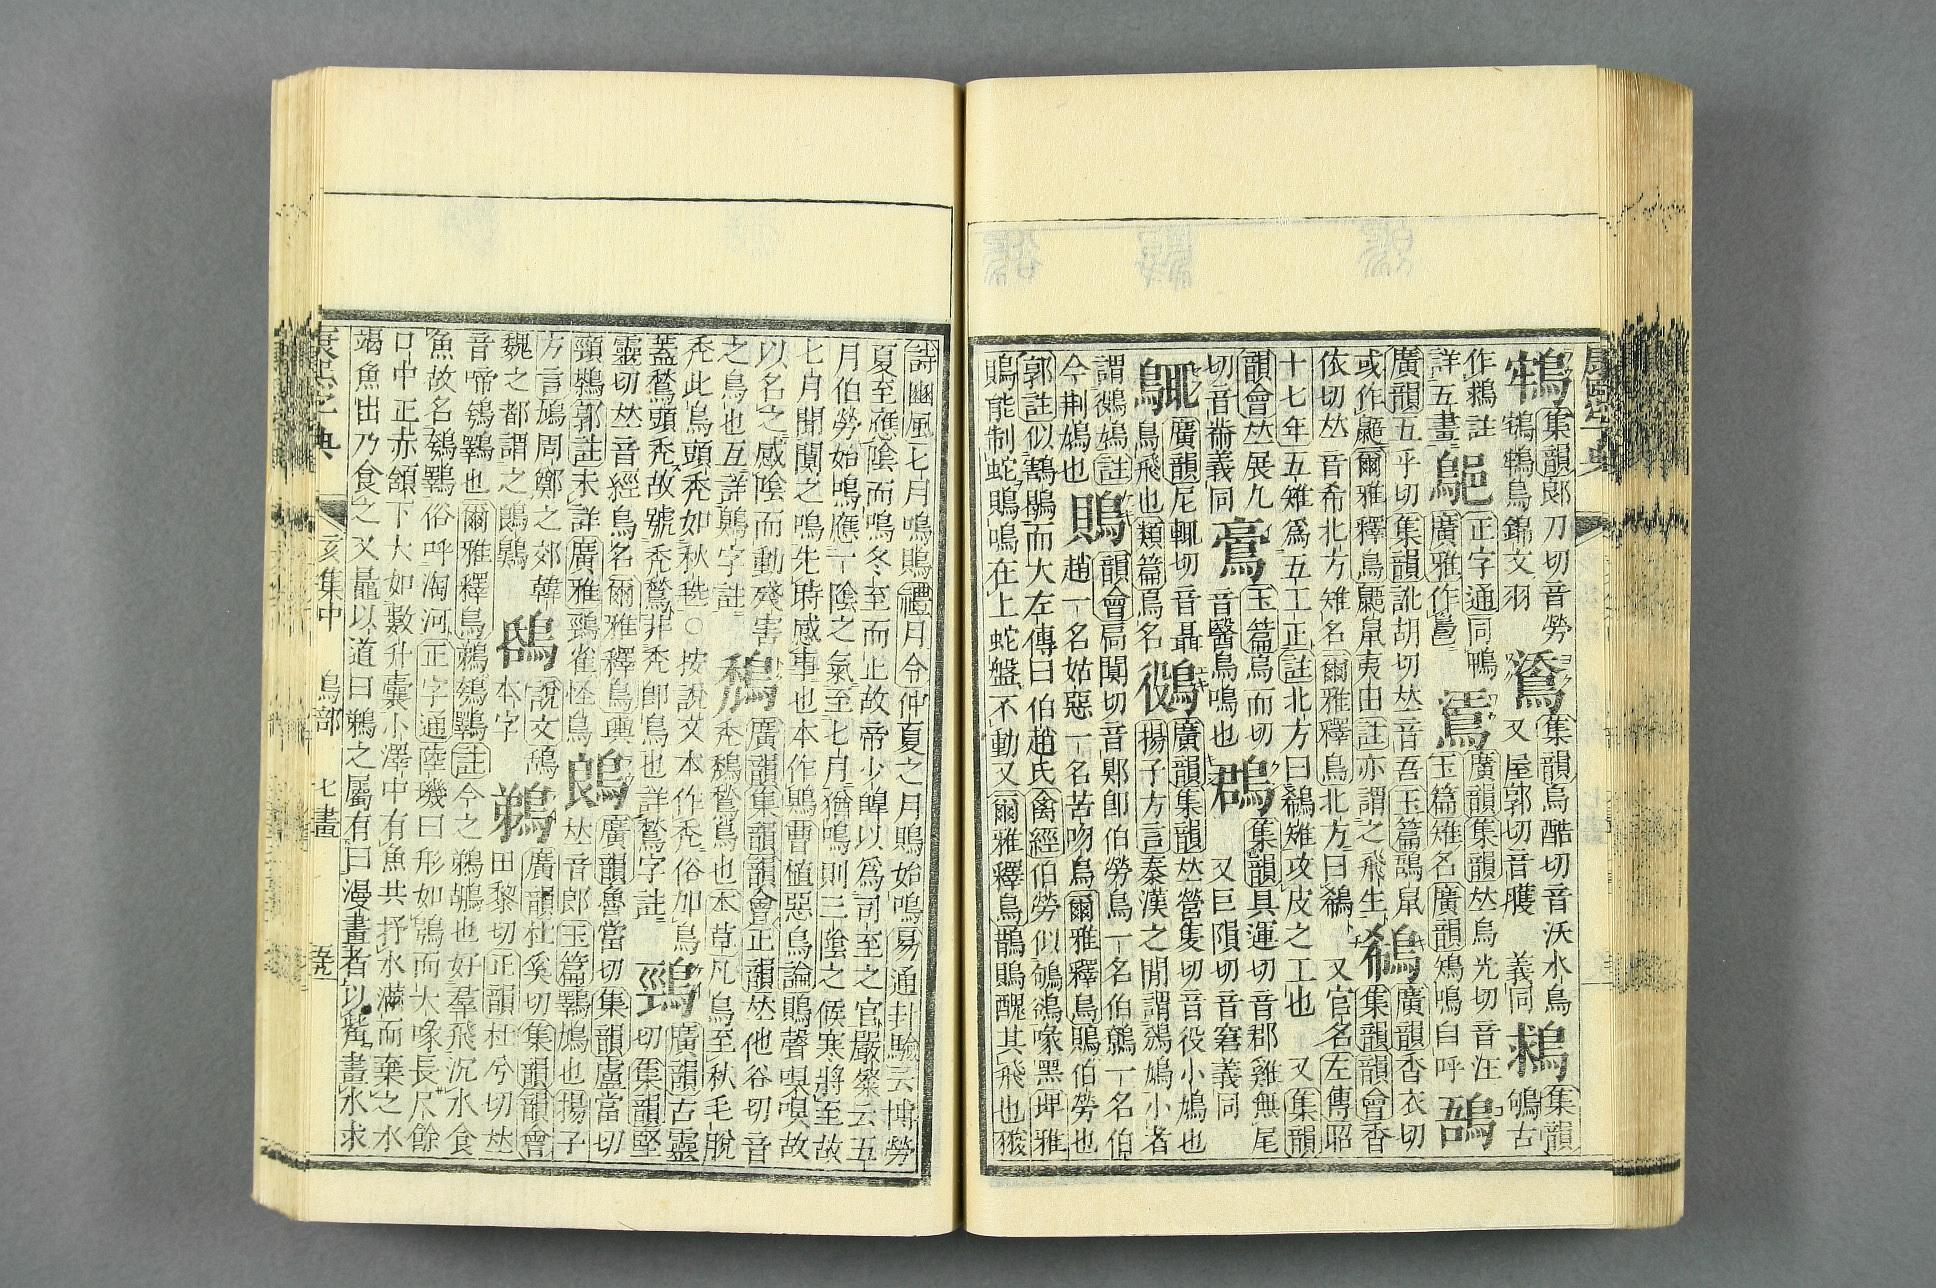 集韻郎刀切音勞
鳥錦文羽
集韻烏酷切音沃水鳥
又屋郭切音雘 義同
集韻
鵂古
作鵝註
詳五畫
正字通同鴨
廣雅作
鵟
廣韻集韻𠀤烏光切音汪
玉篇雉名廣韻鳺鳴自呼
廣韻五乎切集韻訛胡切𠀤音吾玉篇 鼠
或作鼯爾雅釋鳥鼯鼠夷由註亦謂之飛生
鵗
廣韻香衣切
集韻韻會香
依切𠀤音希北方雉名爾雅釋鳥北方曰鵗 又官名左傳昭
十七年五雉爲五工正註北方曰鵗雉攻皮之工也 又集韻
韻會𠀤展九
切音 義同
玉篇烏而切
音醫鳥鳴也
鵘
集韻具運切音郡雞無尾
又巨隕切音窘義同
廣韻尼輒切音聶
鳥飛也類篇鳥名
廣韻集韻𠀤營隻切音役小鳩也
揚子方言秦漢之閒謂鶪鳩小者
謂 鳩註
今荆鳩也
鵙
韻會扃闃切音郹卽伯勞鳥一名伯鷯一名伯
趙一名姑惡一名苦吻鳥爾雅釋鳥鵙伯勞也
郭註似鶷鶡而大左傳曰伯趙氏禽經伯勞似鴝鵒喙黑埤雅
鵙能制蛇鵙鳴在上蛇盤不動又爾雅釋鳥鵲鵙醜其飛也翪
詩豳風七月鳴鵙禮月令仲夏之月鵙始鳴易通卦驗云博勞
夏至應陰而鳴冬至而止故帝少皥以爲司至之官嚴粲云五
月伯勞始鳴應一陰之氣至七月猶鳴則三陰之候寒將至故
七月聞鵙之鳴先時感事也本作鶪曹植惡鳥論鵙聲嗅嗅故
以名之感陰而動殘害
之鳥也互詳鶪字註
鵚
廣韻集韻韻會正韻𠀤他谷切音
禿鵚鶖鳥也本草凡鳥至秋毛脫
禿此鳥頭禿如秋毨〇按說文本作禿俗加鳥
蓋鶖鳥頭禿故號禿鶖非禿卽鳥也詳鶖字註
鵛
廣韻古靈
切集韻堅
靈切𠀤音經鳥名爾雅釋鳥輿
鵛鷋郭註未詳廣雅鵛雀怪鳥
鋃
廣韻魯當切集韻盧當切
𠀤音郎玉篇鶚鳩也揚子
方言鳲周鄭之郊韓
魏之都謂之
鴰
說文鴰
本字
鵜
廣韻杜奚切集韻韻會
田黎切正韻杜兮切𠀤
音啼鵜鶘也爾雅釋鳥鵜鴮鸅註今之鵜鶘也好羣飛沉水食
魚故名鴮鸅俗呼淘河正字通陸璣曰形如鶚而大喙長尺餘
口中正赤頷下大如數升囊小澤中有魚共抒水滿而棄之水
竭魚出乃食之又聶以道曰鵜之屬有曰漫畫者以觜畫水求
康熙字典 亥集中 鳥部 七畫